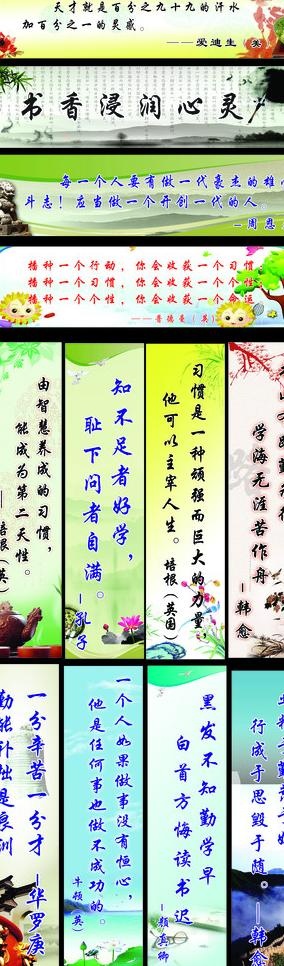 天才就是百分之九十九的汗水
加百分之一的灵感。
——爱迪生（美）
书香浸润心灵
每一个人要有做一代豪杰的雄心
斗志！应当做一个开创一代的人。
—周恩
播种一个行动，你会收获一个习惯
播种一个习惯，你会收获一个个性
播种一个个性，你会收获一个命运
——普德曼（英）
由智慧养成的习惯，
能成为第二天性。
——培根（英）
知不足者好学，
耻下问者自满。
—孔子
习惯是一种顽强而巨大的力量
他可以主宰人生。
培根（英国）
学海无涯苦作舟
—韩愈
一分辛苦一分才
勤能补拙是良训
—华罗庚
一个人如果做事没有恒心，
他是任何事也做不成功的。
牛顿（英）
黑发不知勤学早
白首方悔读书迟
—颜真卿
行成于思毁于随。
—韩愈